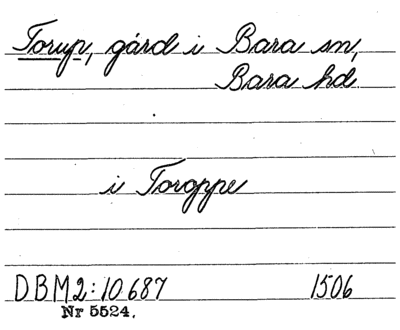 Torup, gård i Bara sn,
Bara hd.
i Torgppe
DBM2:10687 1506
Nr 5524.